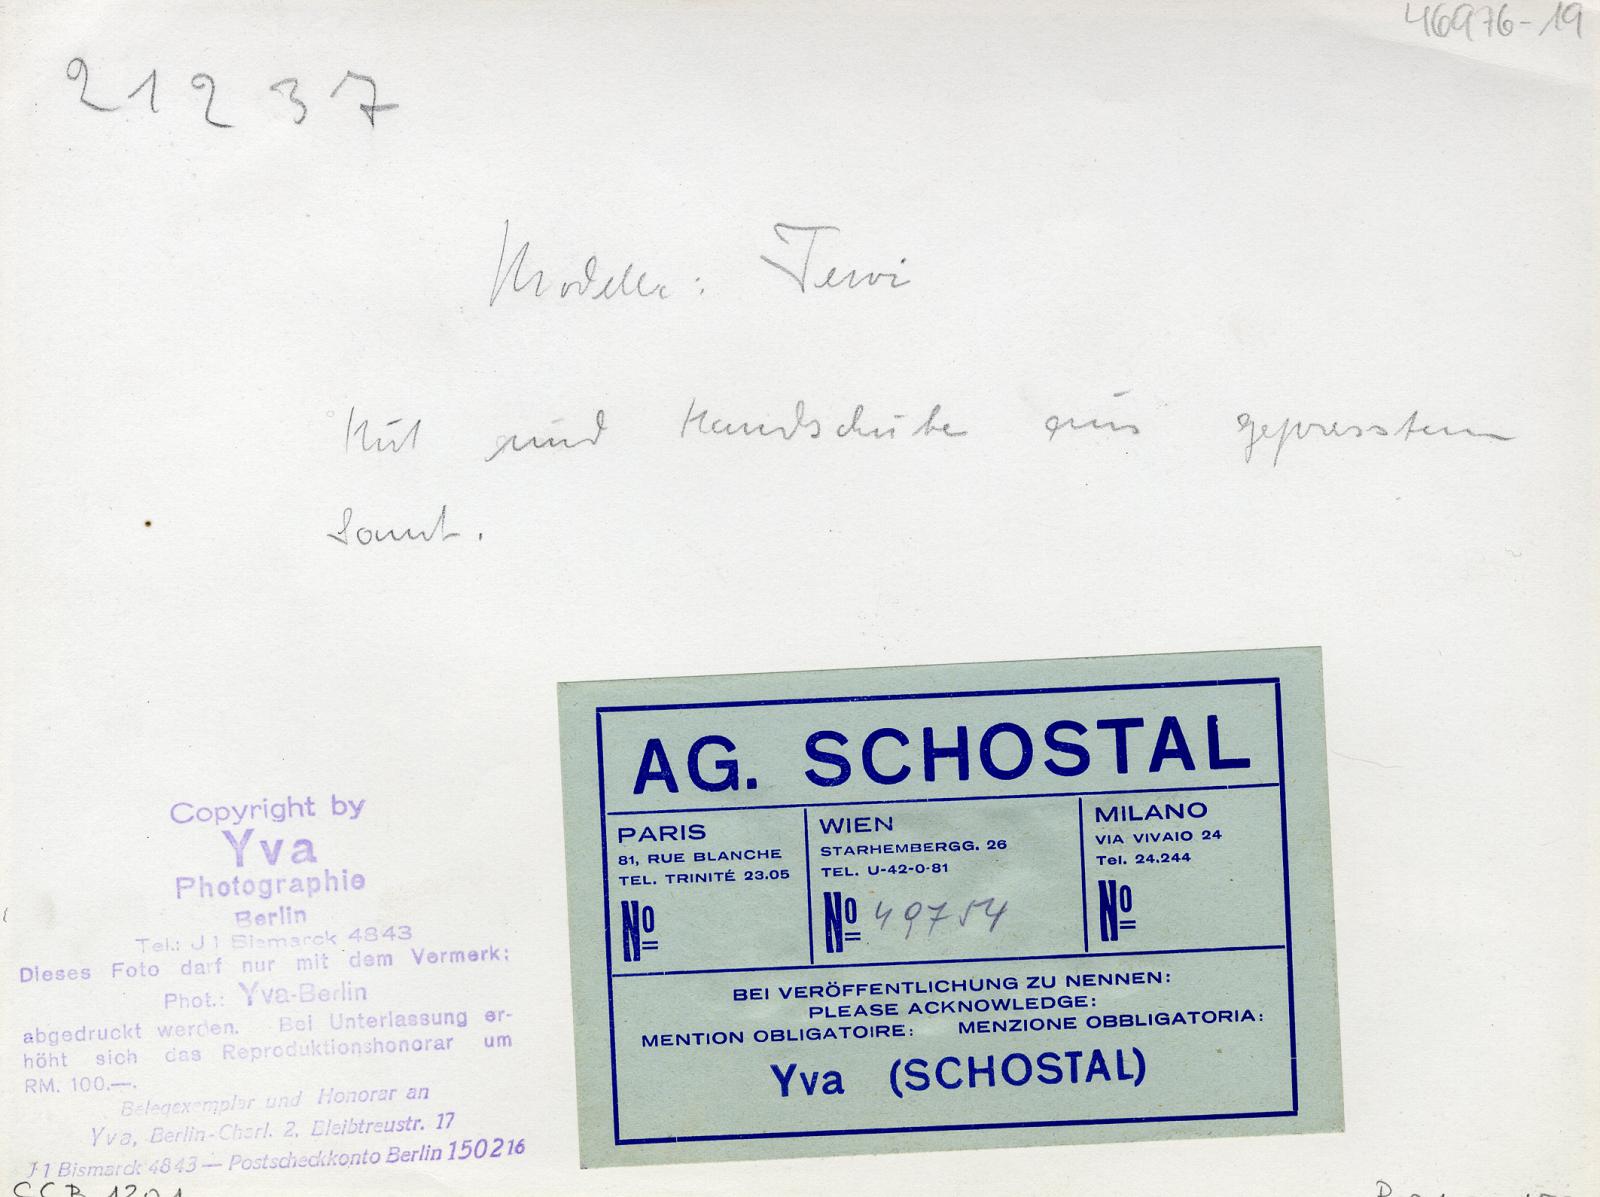 46976-19
21237
Modelle: Tervi
Hut und Handschuhe aus gepresstem
Samt.
Copyright by
Yva
Photographie
Berlin
Tel.: J 1 Bismarck 4843
Dieses Foto darf nur mit dem Vermerk:
Phot.: Yva-Berlin
abgedruckt werden. Bei Unterlassung er-
höht sich das Reproduktionshonorar um
RM. 100.—.
Belegexemplar und Honorar an
Yva, Berlin-Charl. 2, Bleibtreustr. 17
J 1 Bismarck 4843 — Postscheckkonto Berlin 150216
AG. SCHOSTAL
PARIS
81, RUE BLANCHE
TEL. TRINITÉ 23.05
No
WIEN
STARHEMBERGG. 26
TEL. U-42-0-81
No 49754
MILANO
VIA VIVAIO 24
Tel. 24.244
No
BEI VERÖFFENTLICHUNG ZU NENNEN:
PLEASE ACKNOWLEDGE:
MENTION OBLIGATOIRE: MENZIONE OBBLIGATORIA:
Yva (SCHOSTAL)